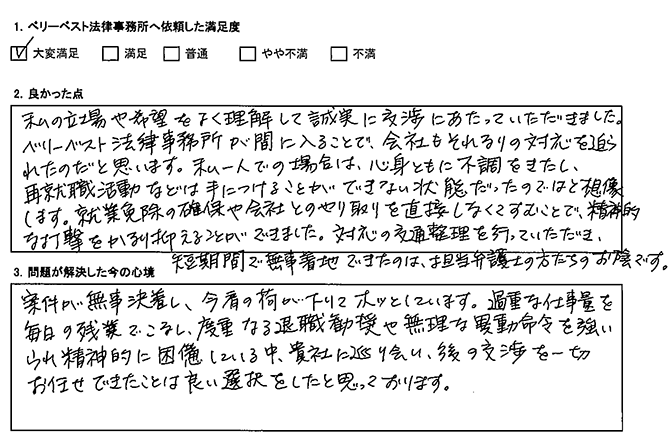 1. ベリーベスト法律事務所へ依頼した満足度
大変満足 満足 普通 やや不満 不満
2. 良かった点
私の立場や希望をよく理解して誠実に交渉にあたっていただきました。
ベリーベスト法律事務所が間に入ることで、会社もそれなりの対応を迫ら
れたのだと思います。私一人での場合は、心身ともに不調をきたし、
再就職活動などは手につけることができない状態だったのではと想像
します。就業免除の確保や会社とのやり取りを直接しなくてすむことで、精神的
な打撃をかなり抑えることができました。対応の交通整理を行っていただき、
短期間で無事着地できたのは、担当弁護士の方たちのお陰です。
3. 問題が解決した今の心境
案件が無事決着し、今肩の荷が下りてホッとしています。過重な仕事量を
毎日の残業でこなし、度重なる退職勧奨や無理な異動命令を強い
られ精神的に困憊している中、貴社に巡り会い、後の交渉を一切
お任せできたことは良い選択をしたと思っております。